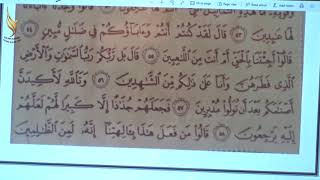 لَهَا عَٰبِدِينَ ٥٣ قَالَ لَقَدْ كُنتُمْ أَنتُمْ وَءَابَآؤُكُمْ فِي ضَلَٰلٍ مُّبِينٍ ٥٤
قَالُوٓاْ أَجِئْتَنَا بِٱلْحَقِّ أَمْ أَنتَ مِنَ ٱللَّٰعِبِينَ ٥٥ قَالَ بَل رَّبُّكُمْ رَبُّ ٱلسَّمَٰوَٰتِ وَٱلْأَرْضِ
ٱلَّذِي فَطَرَهُنَّ وَأَنَا۠ عَلَىٰ ذَٰلِكُم مِّنَ ٱلشَّٰهِدِينَ ٥٦ وَتَٱللَّهِ لَأَكِيدَنَّ
أَصْنَٰمَكُم بَعْدَ أَن تُوَلُّواْ مُدْبِرِينَ ٥٧ فَجَعَلَهُمْ جُذَٰذًا إِلَّا كَبِيرًا لَّهُمْ لَعَلَّهُمْ
إِلَيْهِ يَرْجِعُونَ ٥٨ قَالُواْ مَن فَعَلَ هَٰذَا بِـَٔالِهَتِنَآ إِنَّهُۥ لَمِنَ ٱلظَّٰلِمِينَ